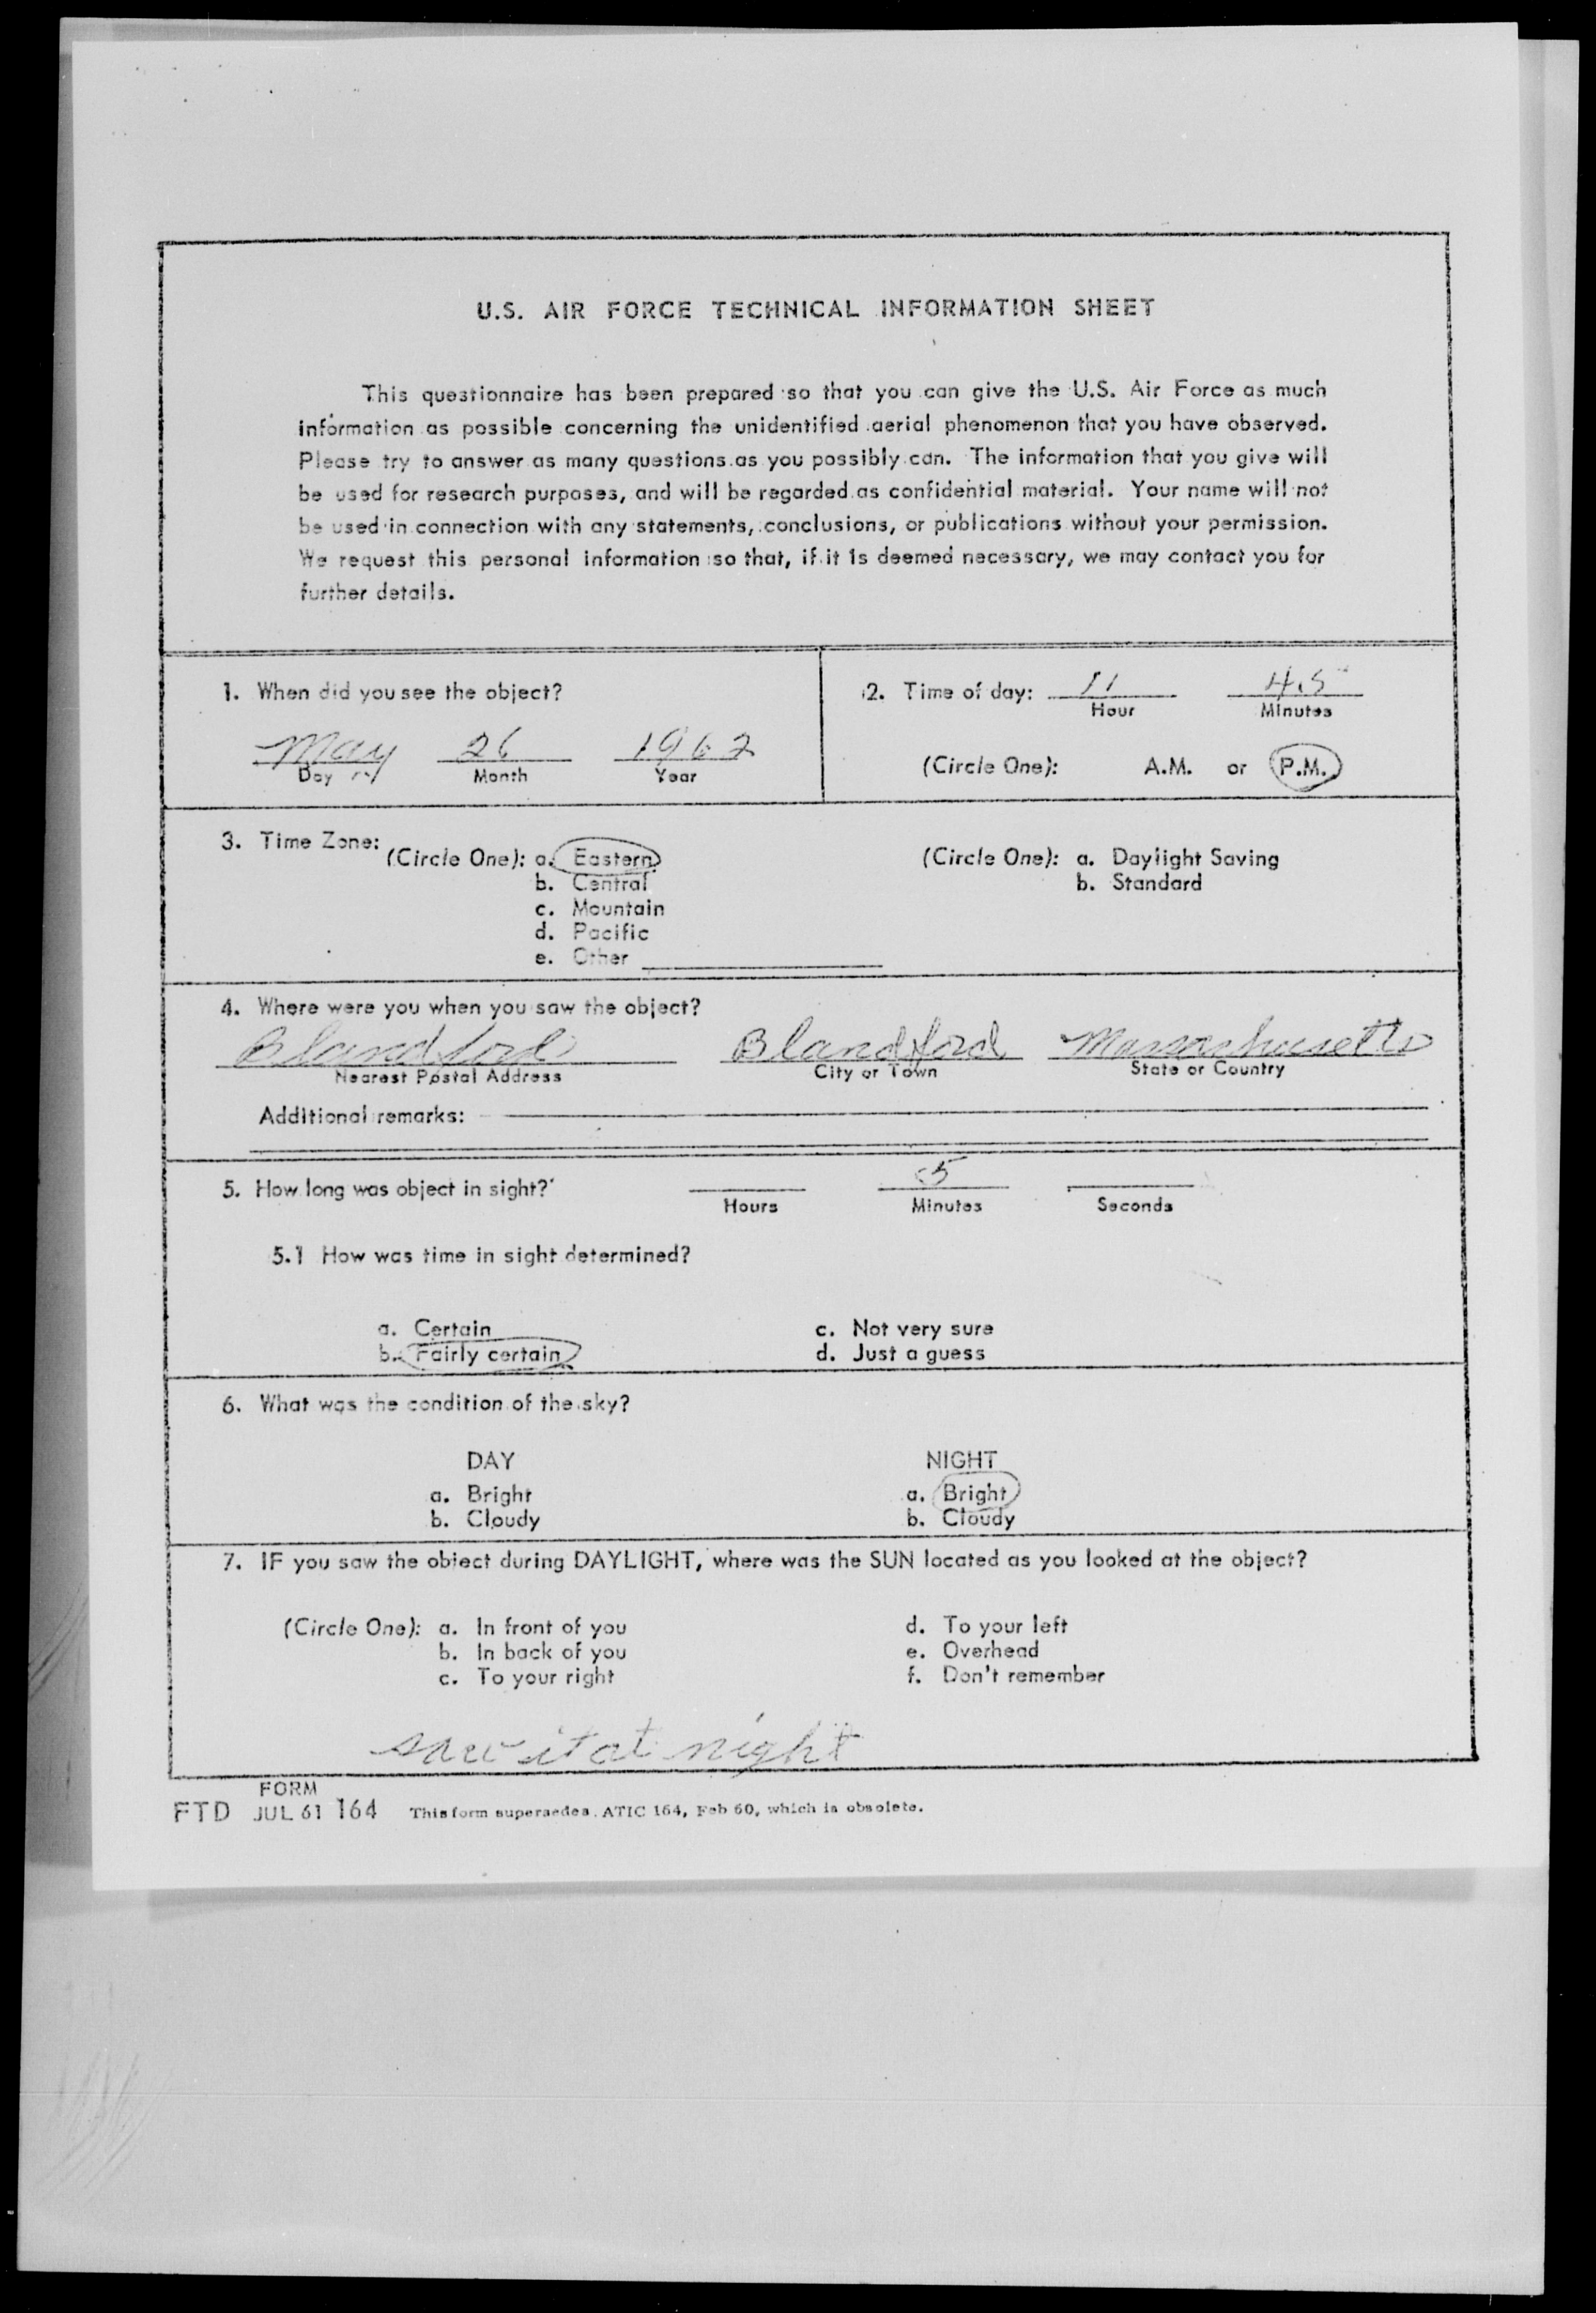 U.S. AIR FORCE TECHNICAL INFORMATION SHEET
This questionnaire has been prepared so that you can give the U.S. Air Force as much
information as possible concerning the unidentified aerial phenomenon that you have observed.
Please try to answer as many questions as you possibly can. The information that you give will
be used for research purposes, and will be regarded as confidential material. Your name will not
be used in connection with any statements, conclusions, or publications without your permission.
We request this personal information so that, if it is deemed necessary, we may contact you for
further details.
1. When did you see the object?
May 26 1962
Day Month Year
2. Time of day: 11 45
Hour Minutes
(Circle One): A.M. or P.M.
3. Time Zone:
(Circle One): a. Eastern
b. Central
c. Mountain
d. Pacific
e. Other
(Circle One): a. Daylight Saving
b. Standard
4. Where were you when you saw the object?
Blandford Blandford Massachusetts
Nearest Postal Address City or Town State or Country
Additional remarks:
5. How long was object in sight? 5
Hours Minutes Seconds
5.1 How was time in sight determined?
a. Certain c. Not very sure
b. Fairly certain d. Just a guess
6. What was the condition of the sky?
DAY NIGHT
a. Bright a. Bright
b. Cloudy b. Cloudy
7. IF you saw the object during DAYLIGHT, where was the SUN located as you looked at the object?
(Circle One): a. In front of you d. To your left
b. In back of you e. Overhead
c. To your right f. Don't remember
saw it at night
FORM
FTD JUL 61 164 This form supersedes ATIC 164, Feb 60, which is obsolete.